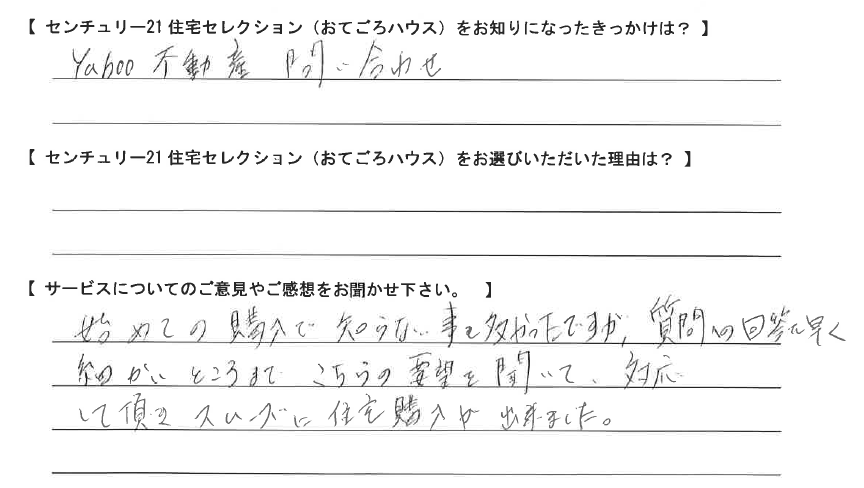 【 センチュリー21 住宅セレクション（おてごろハウス）をお知りになったきっかけは？ 】
Yahoo 不動産 問い合わせ
【 センチュリー21 住宅セレクション（おてごろハウス）をお選びいただいた理由は？ 】
【 サービスについてのご意見やご感想をお聞かせ下さい。 】
始めての購入で知らない事も多かったですが、質問の回答も早く
細かいところまでこちらの要望を聞いて、対応
して頂きスムーズに住宅購入が出来ました。